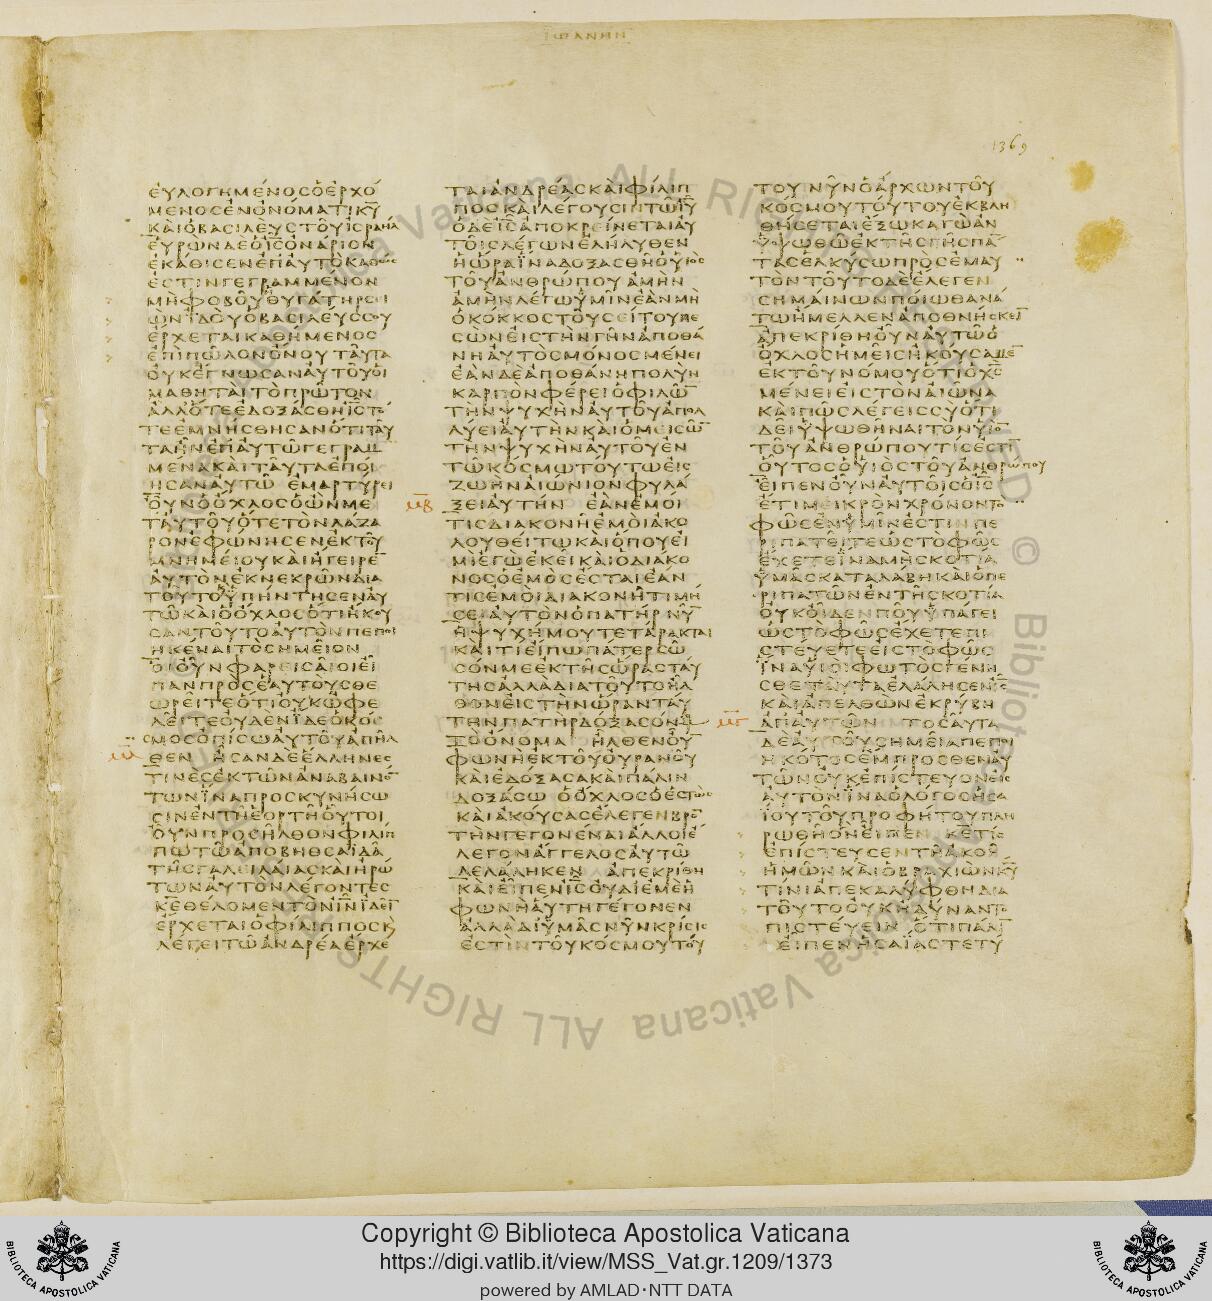 ΙΩΑΝΗΝ
1369
ΕΥΛΟΓΗΜΕΝΟΣΟΕΡΧΟ
ΜΕΝΟΣΕΝΟΝΟΜΑΤΙΚΥ
ΚΑΙΟΒΑΣΙΛΕΥΣΤΟΥΙΣΡΑΗΛ
ΕΥΡΩΝΔΕΟΙΣΟΝΑΡΙΟΝ
ΕΚΑΘΙΣΕΝΕΠΑΥΤΟΚΑΘΩΣ
ΕΣΤΙΝΓΕΓΡΑΜΜΕΝΟΝ
ΜΗΦΟΒΟΥΘΥΓΑΤΗΡΣΕΙ
ΩΝΙΔΟΥΟΒΑΣΙΛΕΥΣΣΟΥ
ΕΡΧΕΤΑΙΚΑΘΗΜΕΝΟΣ
ΕΠΙΠΩΛΟΝΟΝΟΥΤΑΥΤΑ
ΟΥΚΕΓΝΩΣΑΝΑΥΤΟΥΟΙ
ΜΑΘΗΤΑΙΤΟΠΡΩΤΟΝ
ΑΛΛΟΤΕΕΔΟΞΑΣΘΗΙΣΤΟ
ΤΕΕΜΝΗΣΘΗΣΑΝΟΤΙΤΑΥ
ΤΑΗΝΕΠΑΥΤΩΓΕΓΡΑΜ
ΜΕΝΑΚΑΙΤΑΥΤΑΕΠΟΙ
ΗΣΑΝΑΥΤΩ ΕΜΑΡΤΥΡΕΙ
ΟΥΝΟΟΧΛΟΣΟΩΝΜΕ
ΤΑΥΤΟΥΟΤΕΤΟΝΛΑΖΑ
ΡΟΝΕΦΩΝΗΣΕΝΕΚΤΟΥ
ΜΝΗΜΕΙΟΥΚΑΙΗΓΕΙΡΕ
ΑΥΤΟΝΕΚΝΕΚΡΩΝΔΙΑ
ΤΟΥΤΟΥΠΗΝΤΗΣΕΝΑΥ
ΤΩΚΑΙΟΟΧΛΟΣΟΤΙΗΚΟΥ
ΣΑΝΤΟΥΤΟΑΥΤΟΝΠΕΠΟΙ
ΗΚΕΝΑΙΤΟΣΗΜΕΙΟΝ
ΟΙΟΥΝΦΑΡΕΙΣΑΙΟΙΕΙ
ΠΑΝΠΡΟΣΕΑΥΤΟΥΣΘΕ
ΩΡΕΙΤΕΟΤΙΟΥΚΩΦΕ
ΛΕΙΤΕΟΥΔΕΝΙΔΕΟΚΟΣ
ΜΟΣΟΠΙΣΩΑΥΤΟΥΑΠΗΛ
ΘΕΝ ΗΣΑΝΔΕΕΛΛΗΝΕΣ
ΤΙΝΕΣΕΚΤΩΝΑΝΑΒΑΙΝΟ
ΤΩΝΙΝΑΠΡΟΣΚΥΝΗΣΩ
ΣΙΝΕΝΤΗΕΟΡΤΗΟΥΤΟΙ
ΟΥΝΠΡΟΣΗΛΘΟΝΦΙΛΙΠ
ΠΩΤΩΑΠΟΒΗΘΣΑΙΔΑ
ΤΗΣΓΑΛΕΙΛΑΙΑΣΚΑΙΗΡΩ
ΤΩΝΑΥΤΟΝΛΕΓΟΝΤΕΣ
ΚΕΘΕΛΟΜΕΝΤΟΝΙΝΙΔΕΙ
ΕΡΧΕΤΑΙΟΦΙΛΙΠΠΟΣΚ
ΛΕΓΕΙΤΩΑΝΔΡΕΑΕΡΧΕ
ΤΑΙΑΝΔΡΕΑΣΚΑΙΦΙΛΙΠ
ΠΟΣΚΑΙΛΕΓΟΥΣΙΝΤΩΙΥ
ΟΔΕΙΣΑΠΟΚΡΕΙΝΕΤΑΙΑΥ
ΤΟΙΣΛΕΓΩΝΕΛΗΛΥΘΕΝ
ΗΩΡΑΙΝΑΔΟΞΑΣΘΗΟΥΙΟΣ
ΤΟΥΑΝΘΡΩΠΟΥΑΜΗΝ
ΑΜΗΝΛΕΓΩΥΜΙΝΕΑΝΜΗ
ΟΚΟΚΚΟΣΤΟΥΣΕΙΤΟΥΠΕ
ΣΩΝΕΙΣΤΗΝΓΗΝΑΠΟΘΑ
ΝΗΑΥΤΟΣΜΟΝΟΣΜΕΝΕΙ
ΕΑΝΔΕΑΠΟΘΑΝΗΠΟΛΥΝ
ΚΑΡΠΟΝΦΕΡΕΙΟΦΙΛΩ
ΤΗΝΨΥΧΗΝΑΥΤΟΥΑΠΟΛ
ΛΥΕΙΑΥΤΗΝΚΑΙΟΜΕΙΣΩ
ΤΗΝΨΥΧΗΝΑΥΤΟΥΕΝ
ΤΩΚΟΣΜΩΤΟΥΤΩΕΙΣ
ΖΩΗΝΑΙΩΝΙΟΝΦΥΛΑ
ΜΒ ΞΕΙΑΥΤΗΝ ΕΑΝΕΜΟΙ
ΤΙΣΔΙΑΚΟΝΗΕΜΟΙΑΚΟ
ΛΟΥΘΕΙΤΩΚΑΙΟΠΟΥΕΙ
ΜΙΕΓΩΕΚΕΙΚΑΙΟΔΙΑΚΟ
ΝΟΣΟΕΜΟΣΕΣΤΑΙΕΑΝ
ΤΙΣΕΜΟΙΔΙΑΚΟΝΗΤΙΜΗ
ΣΕΙΑΥΤΟΝΟΠΑΤΗΡΝΥ
ΗΨΥΧΗΜΟΥΤΕΤΑΡΑΚΤΑΙ
ΚΑΙΤΙΕΙΠΩΠΑΤΕΡΣΩ
ΣΟΝΜΕΕΚΤΗΣΩΡΑΣΤΑΥ
ΤΗΣΑΛΛΑΔΙΑΤΟΥΤΟΗΛ
ΘΟΝΕΙΣΤΗΝΩΡΑΝΤΑΥ
ΤΗΝΠΑΤΗΡΔΟΞΑΣΟΝΜ
ΤΟΟΝΟΜΑ ΗΛΘΕΝΟΥ
ΦΩΝΗΕΚΤΟΥΟΥΡΑΝΟΥ
ΚΑΙΕΔΟΞΑΣΑΚΑΙΠΑΛΙΝ
ΔΟΞΑΣΩ ΟΟΧΛΟΣΟΕΣΤΩΣ
ΚΑΙΑΚΟΥΣΑΣΕΛΕΓΕΝΒΡΟ
ΤΗΝΓΕΓΟΝΕΝΑΙΑΛΛΟΙΕ
ΛΕΓΟΝΑΓΓΕΛΟΣΑΥΤΩ
ΛΕΛΑΛΗΚΕΝ ΑΠΕΚΡΙΘΗ
ΚΑΙΕΙΠΕΝΙΣΟΥΔΙΕΜΕΗ
ΦΩΝΗΑΥΤΗΓΕΓΟΝΕΝ
ΑΛΛΑΔΙΥΜΑΣΝΥΝΚΡΙΣΙΣ
ΕΣΤΙΝΤΟΥΚΟΣΜΟΥΤΟΥ
ΤΟΥΝΥΝΟΑΡΧΩΝΤΟΥ
ΚΟΣΜΟΥΤΟΥΤΟΥΕΚΒΛΗ
ΘΗΣΕΤΑΙΕΞΩΚΑΓΩΑΝ
ΥΨΩΘΩΕΚΤΗΣΓΗΣΠΑ
ΤΑΣΕΛΚΥΣΩΠΡΟΣΕΜΑΥ
ΤΟΝΤΟΥΤΟΔΕΕΛΕΓΕΝ
ΣΗΜΑΙΝΩΝΠΟΙΩΘΑΝΑ
ΤΩΗΜΕΛΛΕΝΑΠΟΘΝΗΣΚΕΙ
ΑΠΕΚΡΙΘΗΟΥΝΑΥΤΩΟ
ΟΧΛΟΣΗΜΕΙΣΗΚΟΥΣΑΜΕ
ΕΚΤΟΥΝΟΜΟΥΟΤΙΟΧΣ
ΜΕΝΕΙΕΙΣΤΟΝΑΙΩΝΑ
ΚΑΙΠΩΣΛΕΓΕΙΣΣΥΟΤΙ
ΔΕΙΥΨΩΘΗΝΑΙΤΟΝΥΙΟ
ΤΟΥΑΝΘΡΩΠΟΥΤΙΣΕΣΤΙ
ΟΥΤΟΣΟΥΙΟΣΤΟΥΑΝΘΡΩΠΟΥ
ΕΙΠΕΝΟΥΝΑΥΤΟΙΣΟΙΣ
ΕΤΙΜΕΙΚΡΟΝΧΡΟΝΟΝΤΟ
ΦΩΣΕΝΥΜΙΝΕΣΤΙΝΠΕ
ΡΙΠΑΤΕΙΤΕΩΣΤΟΦΩΣ
ΕΧΕΤΕΙΝΑΜΗΣΚΟΤΙΑ
ΥΜΑΣΚΑΤΑΛΑΒΗΚΑΙΟΠΕ
ΡΙΠΑΤΩΝΕΝΤΗΣΚΟΤΙΑ
ΟΥΚΟΙΔΕΝΠΟΥΥΠΑΓΕΙ
ΩΣΤΟΦΩΣΕΧΕΤΕΠΙ
ΣΤΕΥΕΤΕΕΙΣΤΟΦΩΣ
ΙΝΑΥΙΟΙΦΩΤΟΣΓΕΝΗ
ΣΘΕΤΑΥΤΑΕΛΑΛΗΣΕΝΙΣ
ΚΑΙΑΠΕΛΘΩΝΕΚΡΥΒΗ
ΑΠΑΥΤΩΝ ΤΟΣΑΥΤΑ
ΔΕΑΥΤΟΥΣΗΜΕΙΑΠΕΠΟΙ
ΗΚΟΤΟΣΕΜΠΡΟΣΘΕΝΑΥ
ΤΩΝΟΥΚΕΠΙΣΤΕΥΟΝΕΙΣ
ΑΥΤΟΝΙΝΑΟΛΟΓΟΣΗΣΑ
ΙΟΥΤΟΥΠΡΟΦΗΤΟΥΠΛΗ
ΡΩΘΗΟΝΕΙΠΕΝ ΚΕΤΙΣ
ΕΠΙΣΤΕΥΣΕΝΤΗΑΚΟΗ
ΗΜΩΝΚΑΙΟΒΡΑΧΙΩΝΚΥ
ΤΙΝΙΑΠΕΚΑΛΥΦΘΗΔΙΑ
ΤΟΥΤΟΟΥΚΗΔΥΝΑΝΤΟ
ΠΙΣΤΕΥΕΙΝ ΟΤΙΠΑΛΙ
ΕΙΠΕΝΗΣΑΙΑΣΤΕΤΥ
Copyright © Biblioteca Apostolica Vaticana
https://digi.vatlib.it/view/MSS_Vat.gr.1209/1373
powered by AMLAD・NTT DATA
BIBLIOTECA APOSTOLICA VATICANA
BIBLIOTECA APOSTOLICA VATICANA